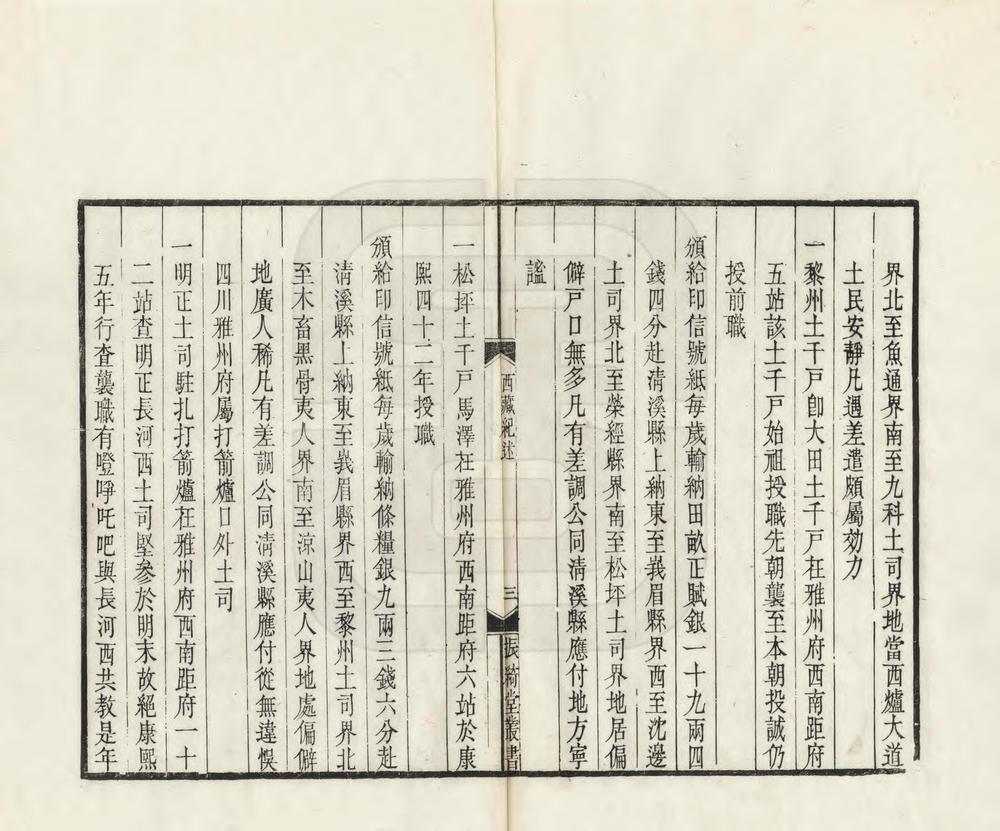 界北至魚通界南至九科土司界地當西爐大道
土民安靜凡遇差遣頗屬効力
一黎州土千戸卽大田土千戸在雅州府西南距府
五站該土千戸始祖授職先朝襲至本朝投誠仍
授前職
頒給印信號紙每歲輸納田畝正賦銀一十九兩四
錢四分赴清溪縣上納東至峩眉縣界西至沈邊
土司界北至榮經縣界南至松坪土司界地居偏
僻戸口無多凡有差調公同清溪縣應付地方寧
謐
西藏紀述
三
振綺堂叢書
一松坪土千戸馬澤在雅州府西南距府六站於康
熙四十二年授職
頒給印信號紙每歲輸納條糧銀九兩三錢六分赴
清溪縣上納東至峩眉縣界西至黎州土司界北
至木畜黑骨夷人界南至涼山夷人界地處偏僻
地廣人稀凡有差調公同清溪縣應付從無違悞
四川雅州府屬打箭爐口外土司
一明正土司駐扎打箭爐在雅州府西南距府一十
二站查明正長河西土司堅參於明末故絕康熙
五年行查襲職有噔哹吒吧與長河西共教是年